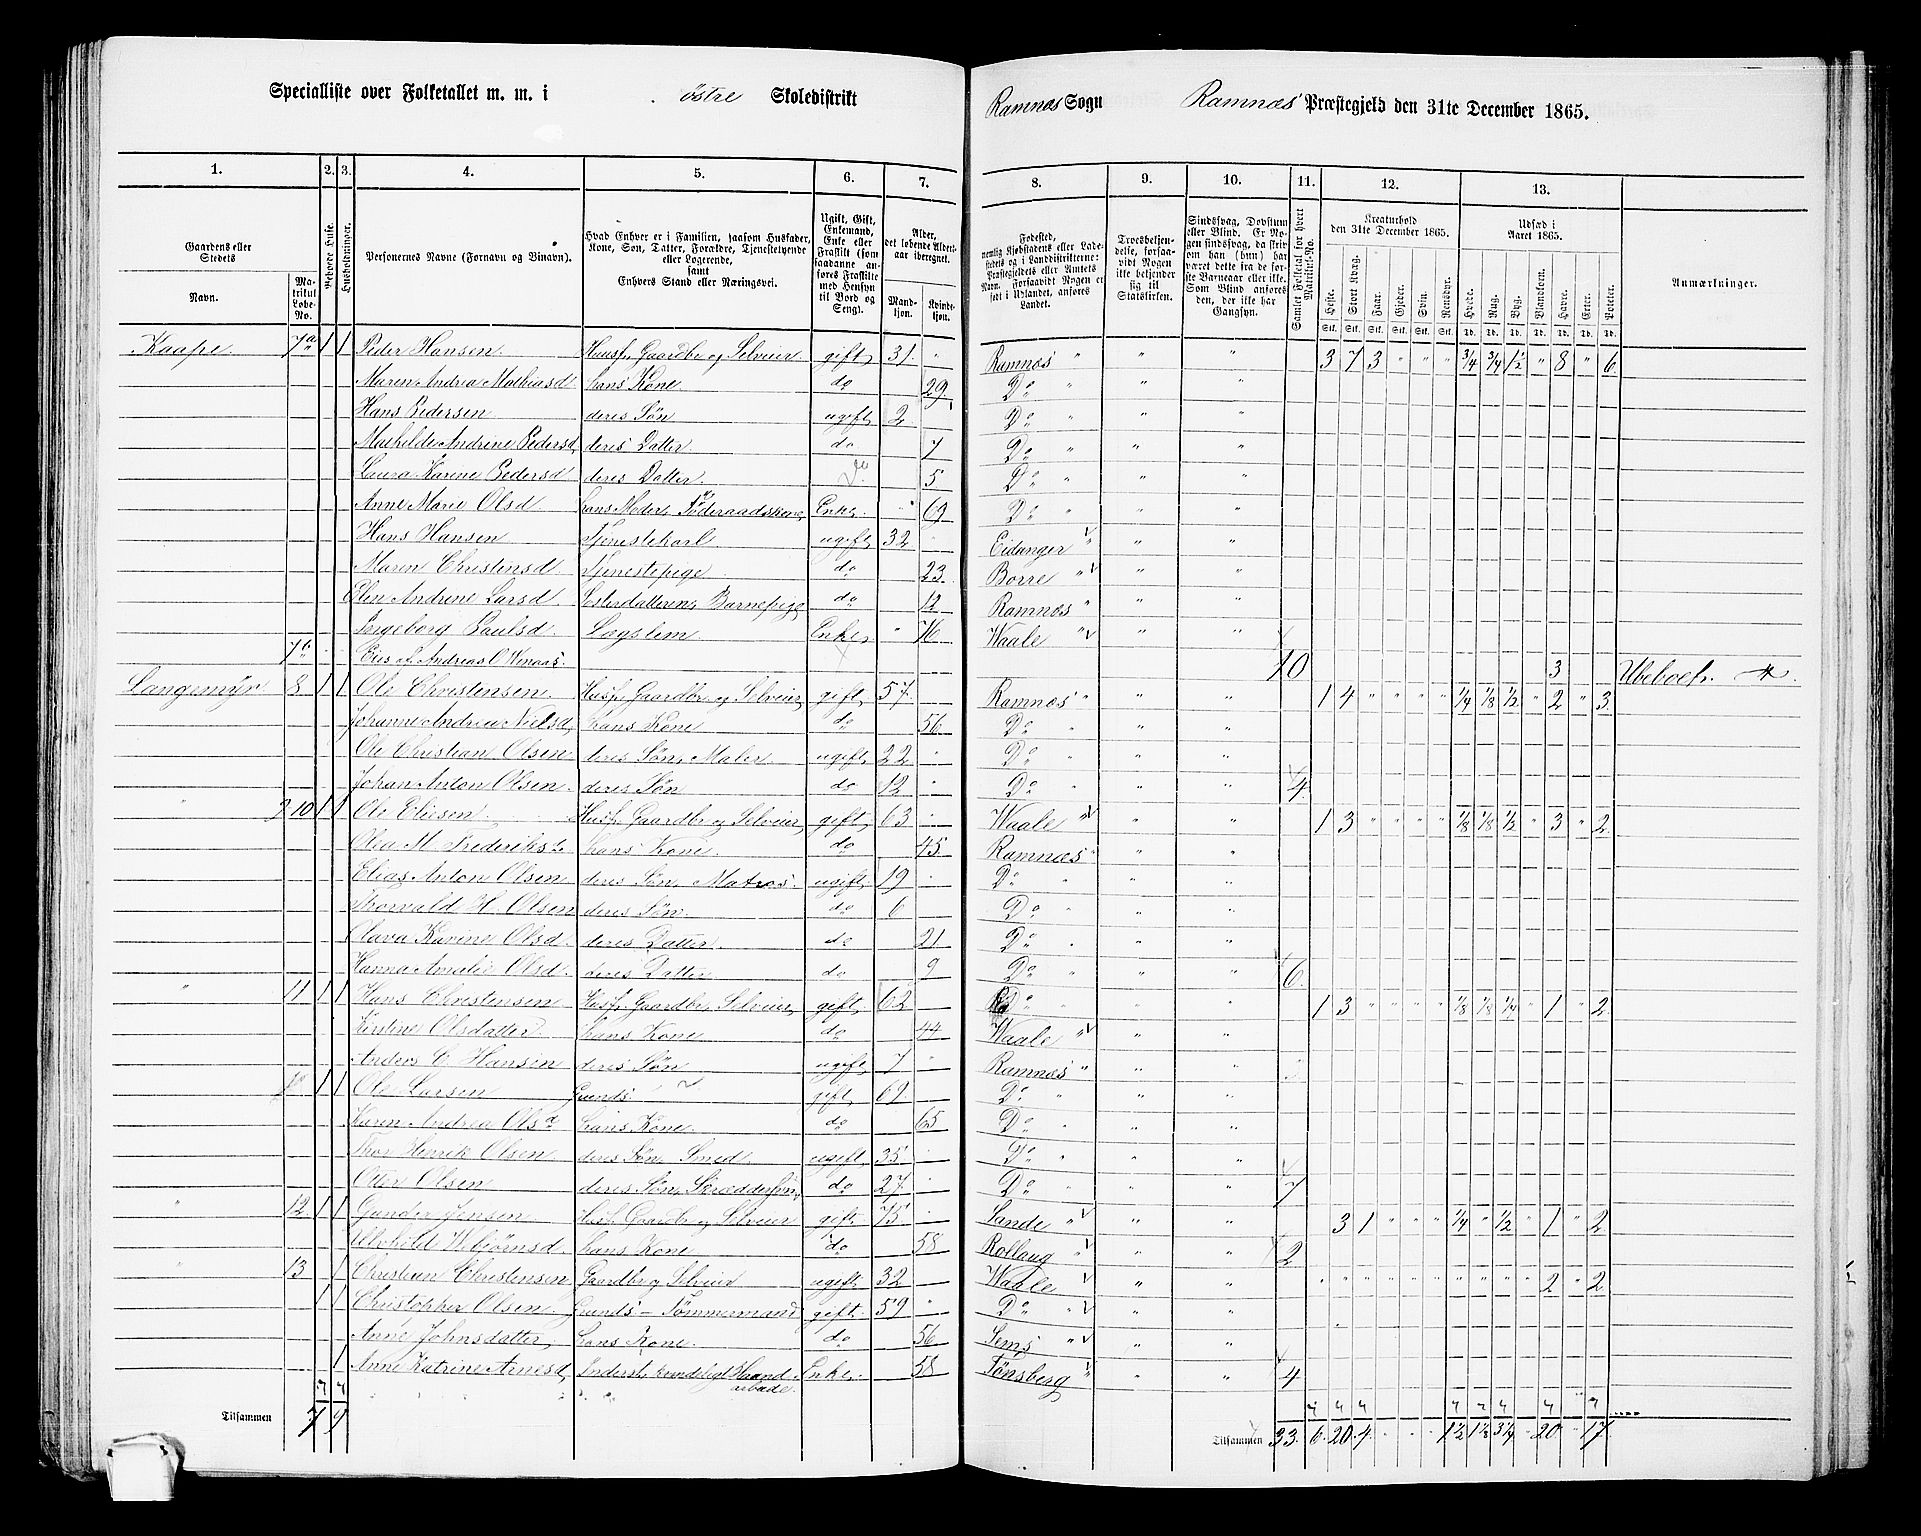 Specialliste over Folketallet m. m. i østre Skoledistrikt Ramnæs Sogn Ramnæs Præstegjeld den 31te December 1865.
1. 2. 3. 4. 5. 6. 7. 8. 9. 10. 11. 12. 13.
Gaardens eller Stedets
Navn.
Matrikul Løbe-No.
Beboede Huse.
Husholdninger.
Personernes Navne (Fornavn og Binavn).
Hvad Enhver er i Familien, saasom Husfader, Kone, Søn, Datter, Forældre, Tjenestetyende eller Logerende, samt Enhvers Stand eller Næringsvei.
Ugift, Gift, Enkemand, Enke eller Fraskilt (som saadanne anføres Fraskilte med Hensyn til Bord og Seng).
Alder, det løbende Alders-aar iberegnet.
Mandkjøn. Kvindekjøn.
Fødested, nemlig Kjøbstadens eller Ladestedets eller i Landdistrikterne: Præstegjeldets eller Amtets Navn. Forsaavidt Nogen er født i Udlandet, anføres Landet.
Troesbekjendelse, forsaavidt Nogen ikke bekjender sig til Statskirken.
Sindssvag, Døvstum eller Blind. Er Nogen sindssvag, da skrives om han (hun) har været dette fra de første Barneaar eller ikke. Som Blind anføres den, der ikke har Gangsyn.
Samlet Folketal for hvert Matrikul-No.
Kreaturhold den 31te December 1865.
Heste. Stort Kvæg. Faar. Gjeder. Svin. Rensdyr.
Udsæd i Aaret 1865.
Hvede. Rug. Byg. Blandkorn. Havre. Erter. Poteter.
Anmærkninger.
Kaape 7a 1 1 Peder Hansen Husf. Gaardbr. og Selveier gift 31 " Ramnæs " " " 3 7 3 " " " 3/4 3/4 1 1/2 " 8 " 6
Maren Andrea Mathiasd. hans Kone do 29 Do " " "
Hans Pedersen deres Søn ugift 2 Do " " "
Mathilde Andrine Pedersd. deres Datter do 7 Do " " "
Laura Karine Pedersd. deres Datter do 5 Do " " "
Anne Marie Olsd. hans Moder, Føderaadskone Enke " 69 Do " " "
Hans Hansen Tjenestekarl ugift 32 " Eidanger " " "
Maren Christensd. Tjenestepige do 23 Borre " " "
Elen Andrine Larsd. Søsterdatteren, Barnepige do 12 Ramnæs " " "
Ingeborg Paulsd. Lægslem Enke " 76 Waale " " " 10
7b Eies af Andreas C. 3 Ubeboet.
Langemyr 8 1 1 Ole Christensen Husf. Gaardbr. og Selveier gift 57 " Ramnæs " " " 1 4 " " " " 1/4 1/8 1/2 " 2 " 3
Johanne Andrea Nielsd. hans Kone do 56 Do " " "
Ole Christian Olsen deres Søn, Maler ugift 22 " Do " " "
Johan Anton Olsen deres Søn do 12 " Do " " " 4
" 10 1 1 Ole Eliesen Husf. Gaardbr. og Selveier gift 63 " Waale " " " 1 3 " " " " 1/8 1/8 1/2 " 3 " 2
Olea M. Frederiksd. hans Kone do 45 Ramnæs " " "
Elias Anton Olsen deres Søn, Matros ugift 19 " Do " " "
Thorvald H. Olsen deres Søn do 6 Do " " "
Olava Karine Olsd. deres Datter do 21 Do " " "
Hanna Amalie Olsd. deres Datter do 9 Do " " " 6
" 11 1 1 Hans Christensen Husf. Gaardbr. Selveier gift 62 Do " " 1 3 " " " " 1/8 1/8 1/4 " 1 " 2
Kirstine Olsdatter hans Kone do 44 Waale " " "
Anders C. Hansen deres Søn ugift 7 " Ramnæs " " "
1 1 Ole Larsen Grunds. gift 69 Do " " "
Karen Andrea Olsd hans Kone do 65 Do " " "
Thor Henrik Olsen deres Søn Smed ugift 35 " Do " " "
Otter Olsen deres Søn, do 27 " Do " " " 7
" 12 1 1 Gunder Jensen Husf. Gaardbr. og Selveier gift 75 " Sande " " " 3 1 " " " 1/4 " 1/2 " 1 " 2
hans Kone do 58 Rollaug " " " 2
" 13 1 Christian Christensen Gaardbr. og Selveier ugift 32 Waale " " " " " " " " " " " " " 2 " 2
1 1 Christopher Olsen Grunds - Tømmermand gift 59 " Do " " "
Anne Johnsdatter hans Kone do 56 Sems " " "
1 Anne Katrine Arnesd. Inderst, kvindeligt Haandarbeide Enke 58 Tønsberg " " " 4
Tilsammen 7 9 Tilsammen 33 6 20 4 " " " 1 1/2 1 1/8 3 1/4 " 20 " 17